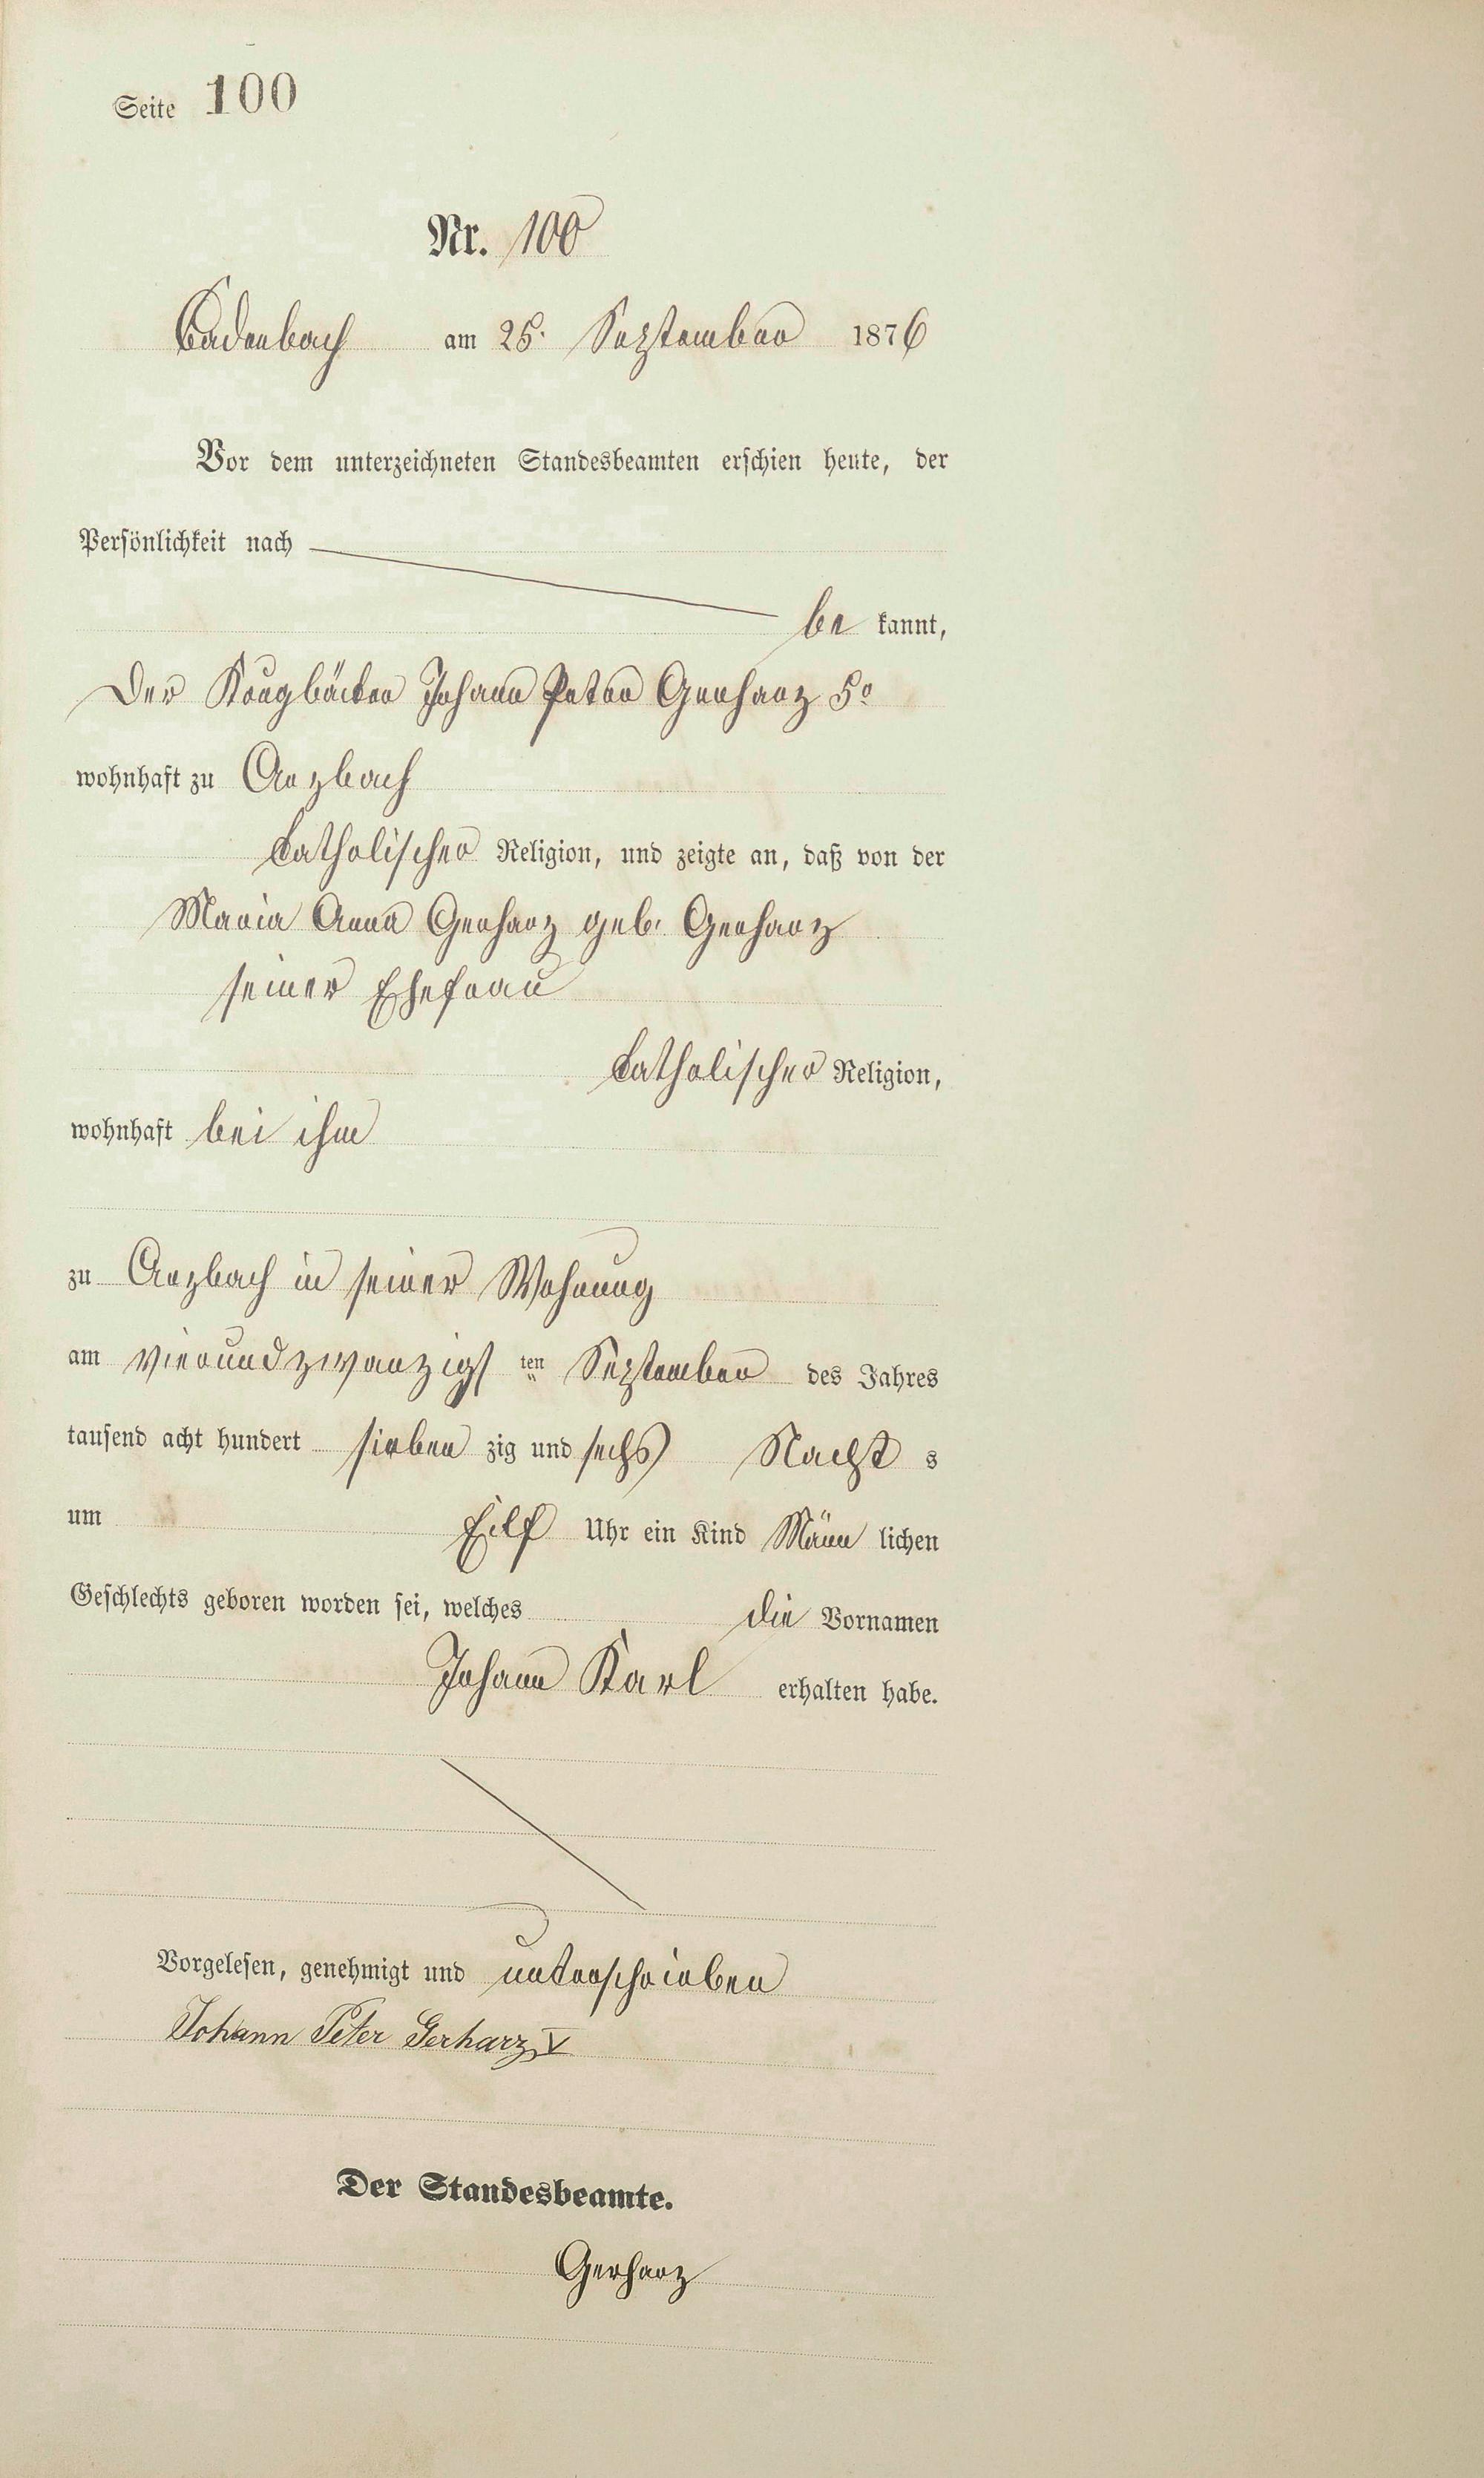 Seite 100
Nr. 100
Cadenbach am 25. September 1876
Vor dem unterzeichneten Standesbeamten erschien heute, der
Persönlichkeit nach
be kannt,
der Krugbäcker Johann Peter Gerharz 5r
wohnhaft zu Arzbach
katholischer Religion, und zeigte an, daß von der
Maria Anna Gerharz geb. Gerharz
seiner Ehefrau
katholischer Religion,
wohnhaft bei ihm
zu Arzbach in seiner Wohnung
am vierundzwanzigs ten September des Jahres
tausend acht hundert sieben zig und sechs Nacht s
um Eilf Uhr ein Kind männ lichen
Geschlechts geboren worden sei, welches die Vornamen
Johann Karl erhalten habe.
Vorgelesen, genehmigt und unterschrieben
Johann Peter Gerharz V
Der Standesbeamte.
Gerharz